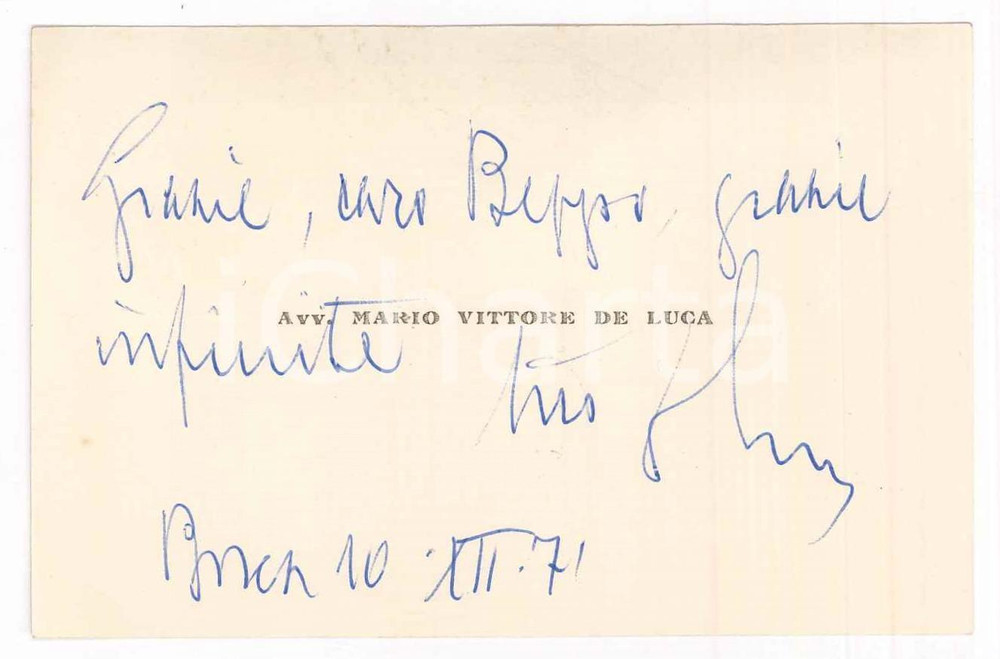 Grazie, caro Beppo, grazie
AVV. MARIO VITTORE DE LUCA
infinite
tuo
10 · XII · 71
iCharta